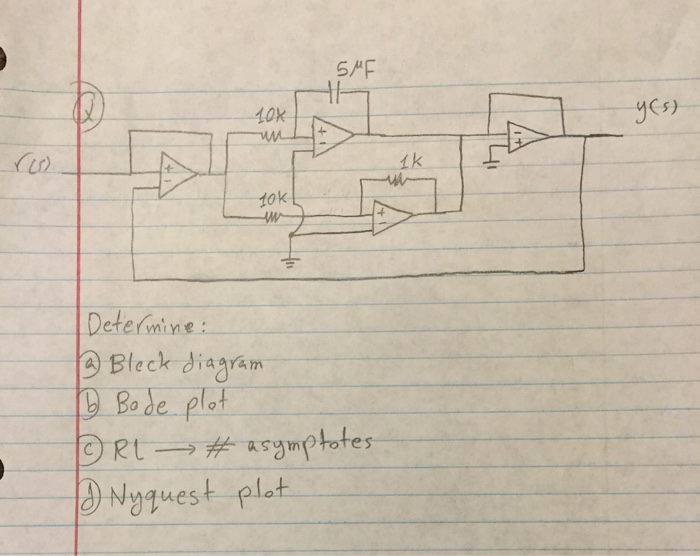 5µF
Q
10k
y(s)
+
-
-
+
r(s)
+
-
1k
10k
+
-
Determine:
a) Block diagram
b) Bode plot
c) RL → # asymptotes
d) Nyquest plot